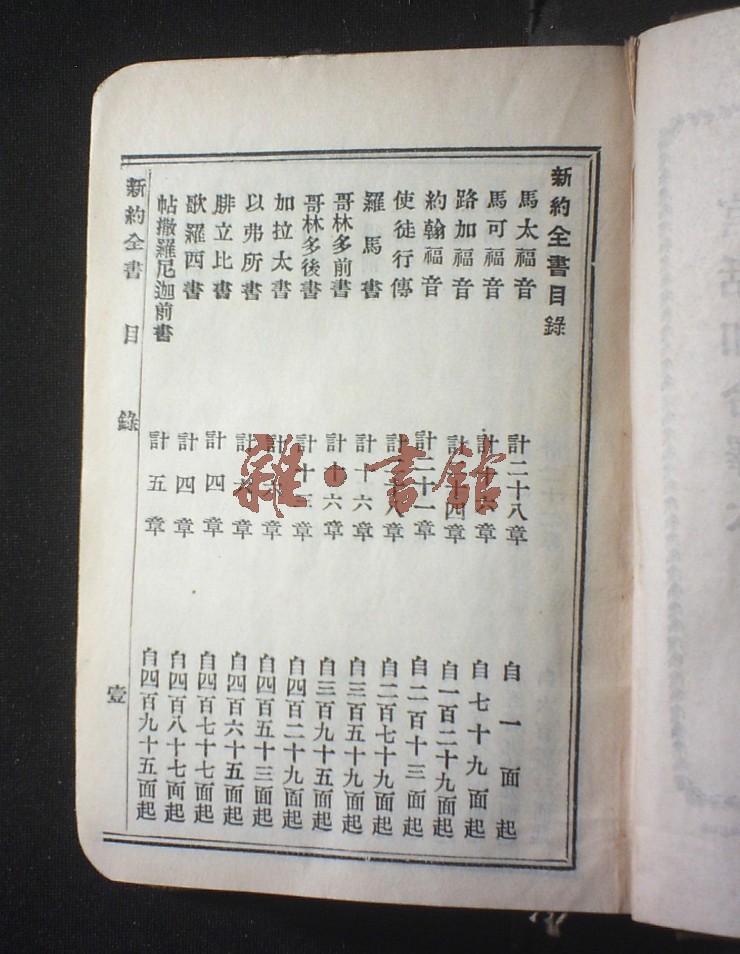 新約全書目錄
馬太福音 計二十八章 自一面起
馬可福音 計十六章 自七十九面起
路加福音 計二十四章 自一百二十九面起
約翰福音 計二十一章 自二百十三面起
使徒行傳 計二十八章 自二百七十九面起
羅馬書 計十六章 自三百五十九面起
哥林多前書 計十六章 自三百九十五面起
哥林多後書 計十三章 自四百二十九面起
加拉太書 計六章 自四百五十三面起
以弗所書 計六章 自四百六十五面起
腓立比書 計四章 自四百七十七面起
歌羅西書 計四章 自四百八十七面起
帖撒羅尼迦前書 計五章 自四百九十五面起
新約全書 目錄 壹
雜·書館